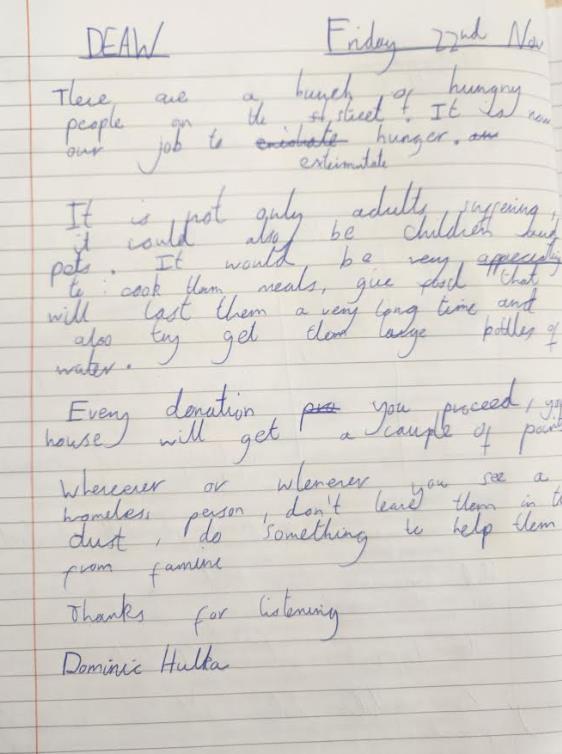 DEAW Friday 22nd Nov
There are a bunch of hungry
people on the street. It is now
our job to hunger.
extimutate
It is not only adults suffering,
it could also be children and
pets. It would be very
to cook them meals, give food that
will last them a very long time and
also try get them large bottles of
water.
Every donation you proceed,
house will get a couple of
Wherever or whenever you see a
homeless person, don't leave them in
dust, do something to help them
from famine
Thanks for listening
Dominic Hulka